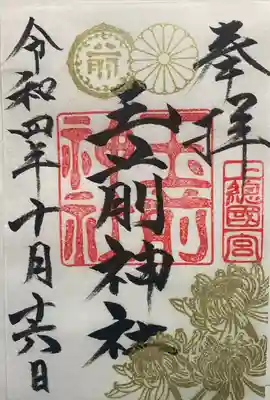 奉拝
上總國一宮
玉前神社
玉前神社
前
令和四年十月十六日